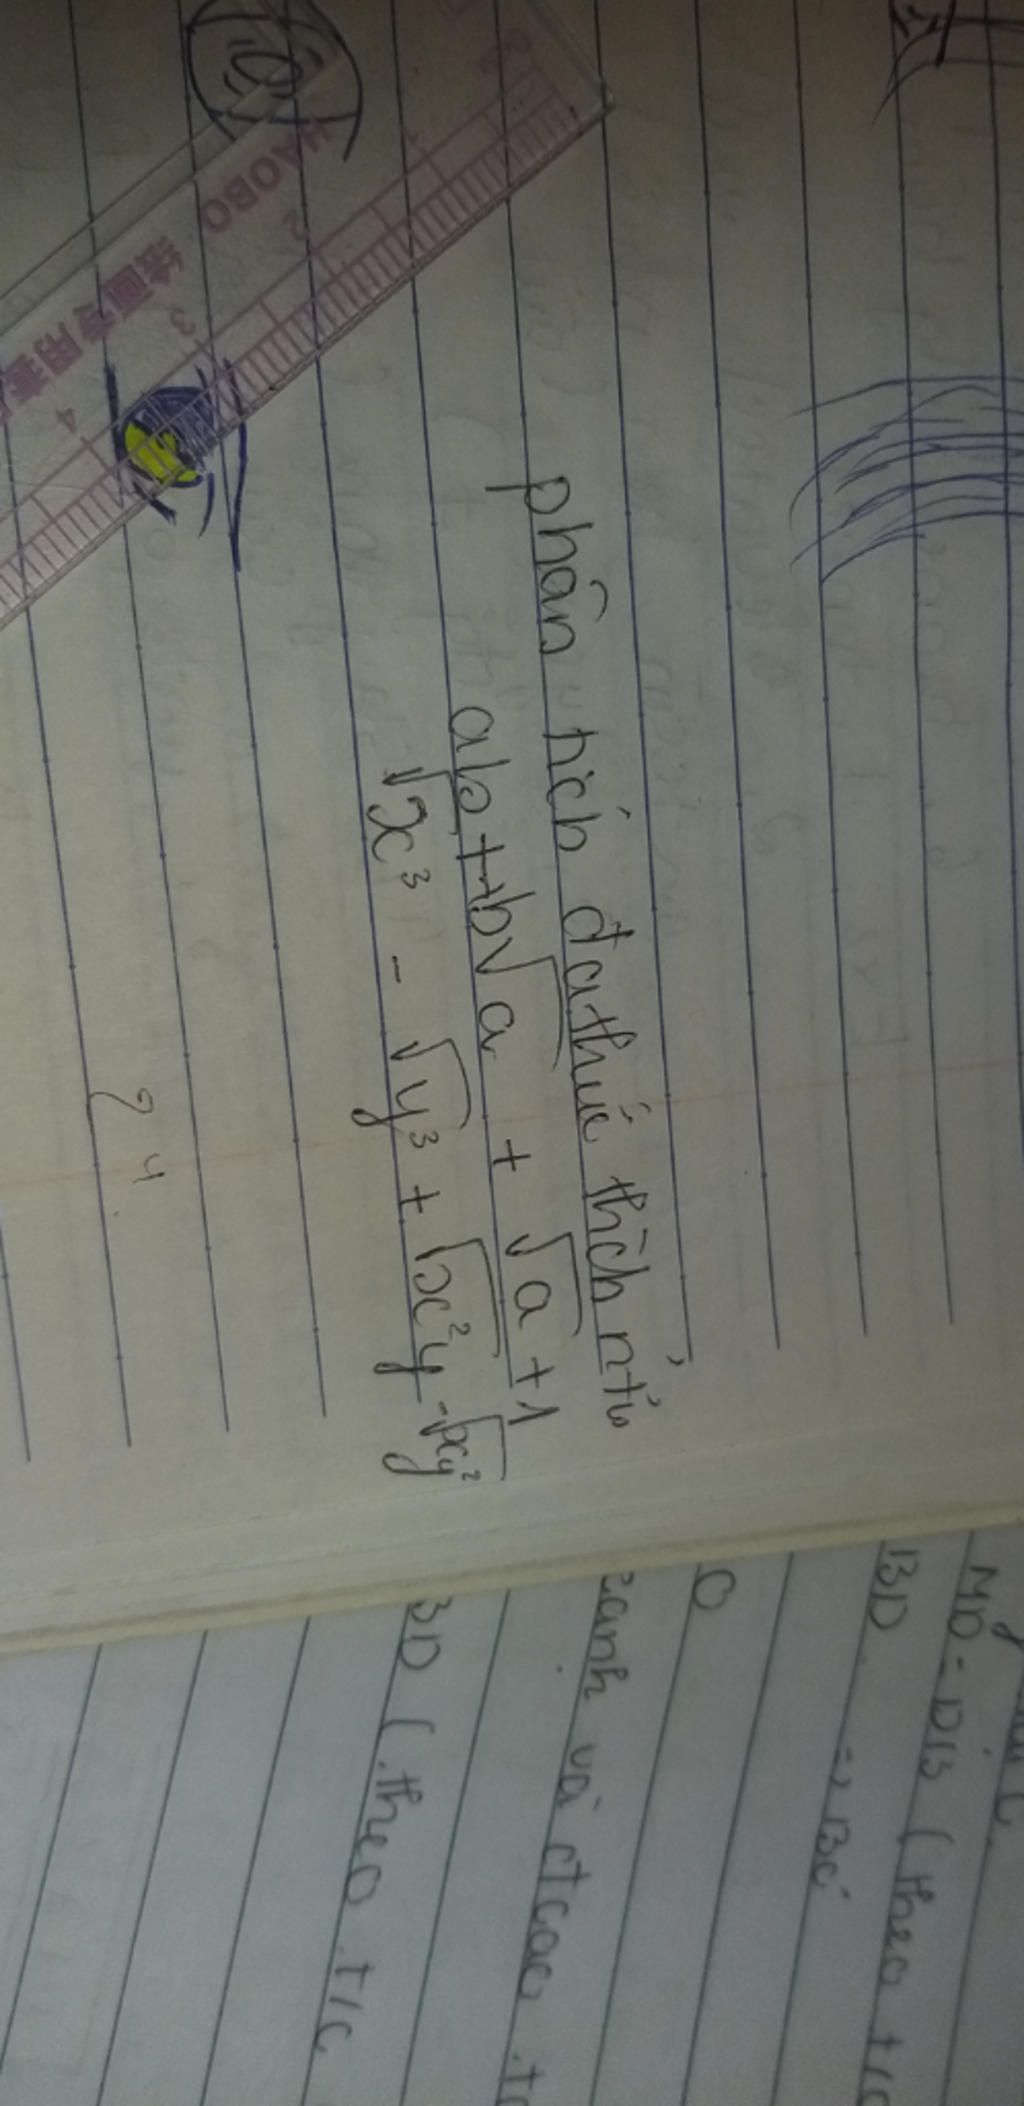 phân tích đa thức thành ntử
ab + b√a + √a + 1
√x³ - √y³ + √x²y - √xy²
24
HAOBO 绘画专用套
2
3
4
MD = DB (theo t/c
BD => BC
O
cạnh và đcao
BD (theo t/c